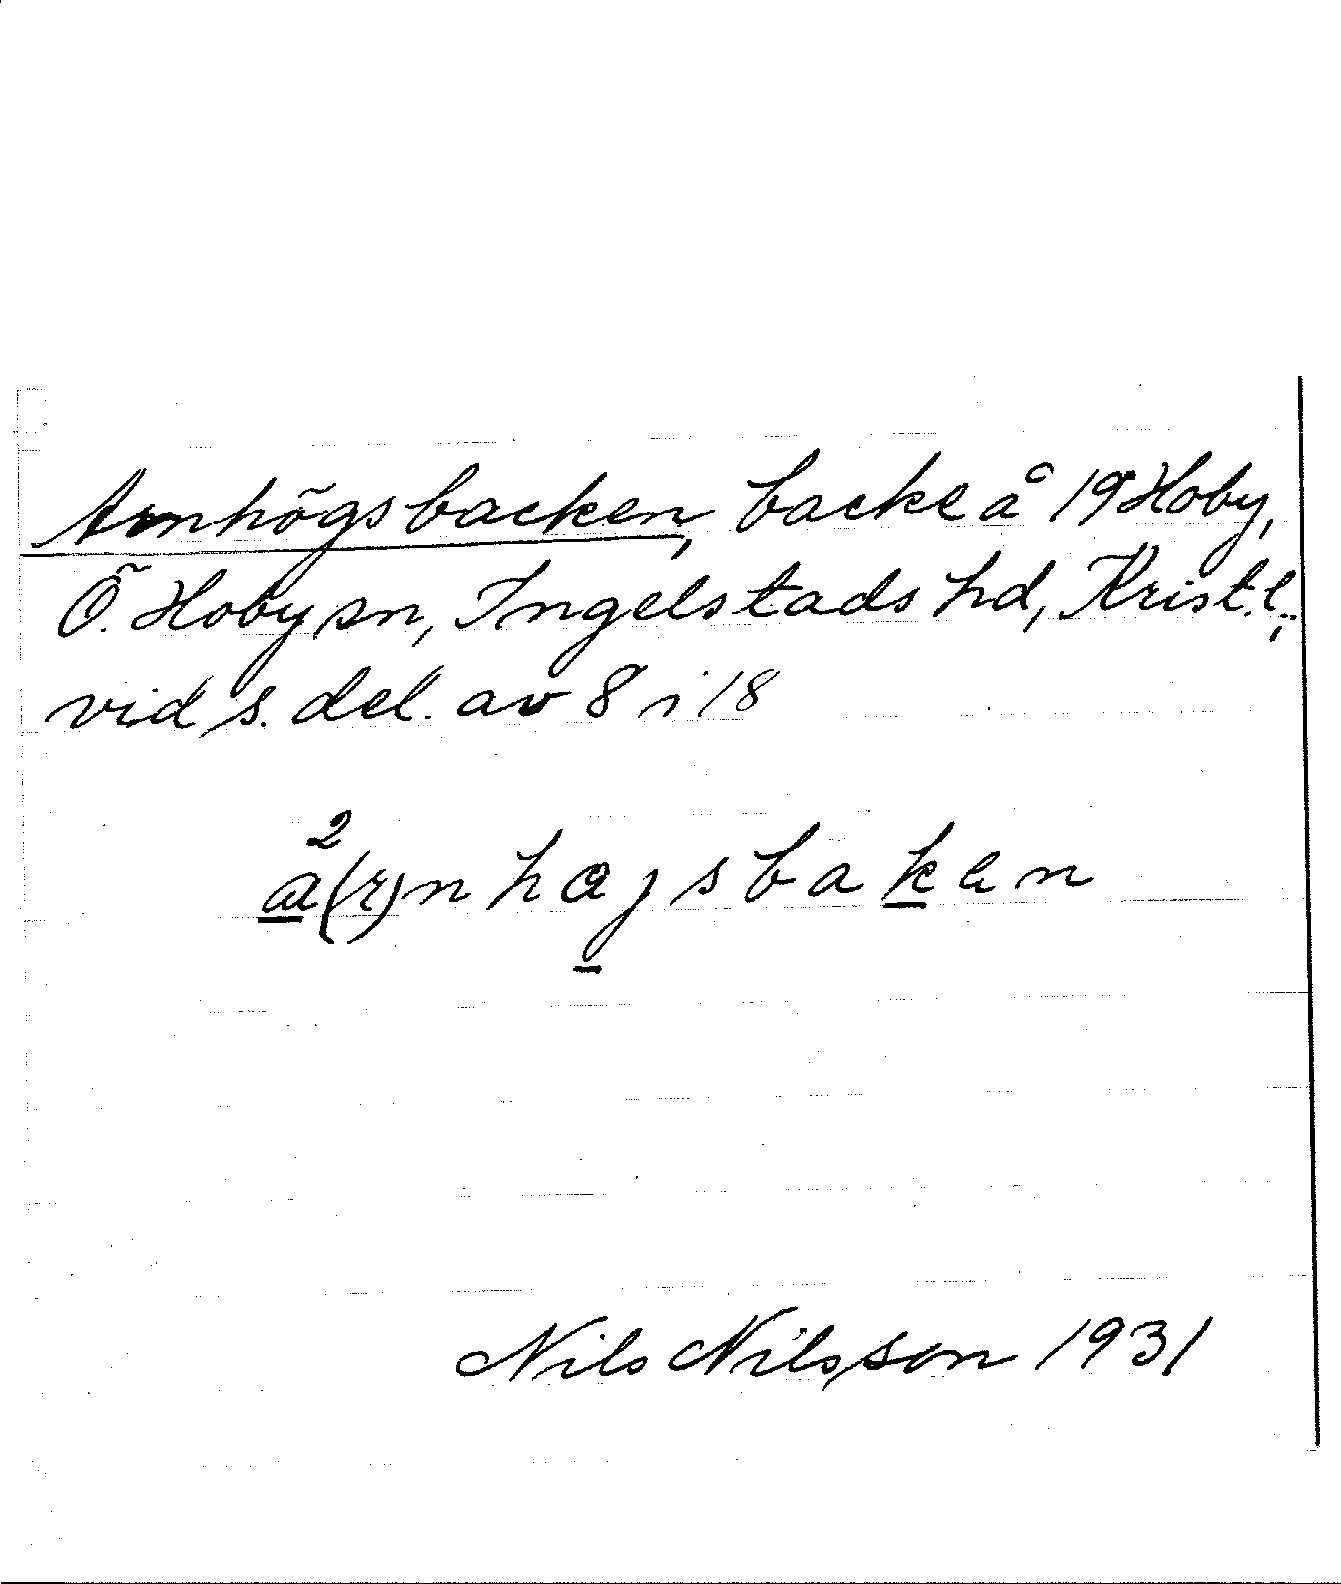 Arnhögsbacken, backe å 19 Hoby,
Ö. Hoby sn, Ingelstads hd, Krist.l.,
vid s. del. av 8 i 18
a²(r)nhøjsbaken
Nils Nilsson 1931